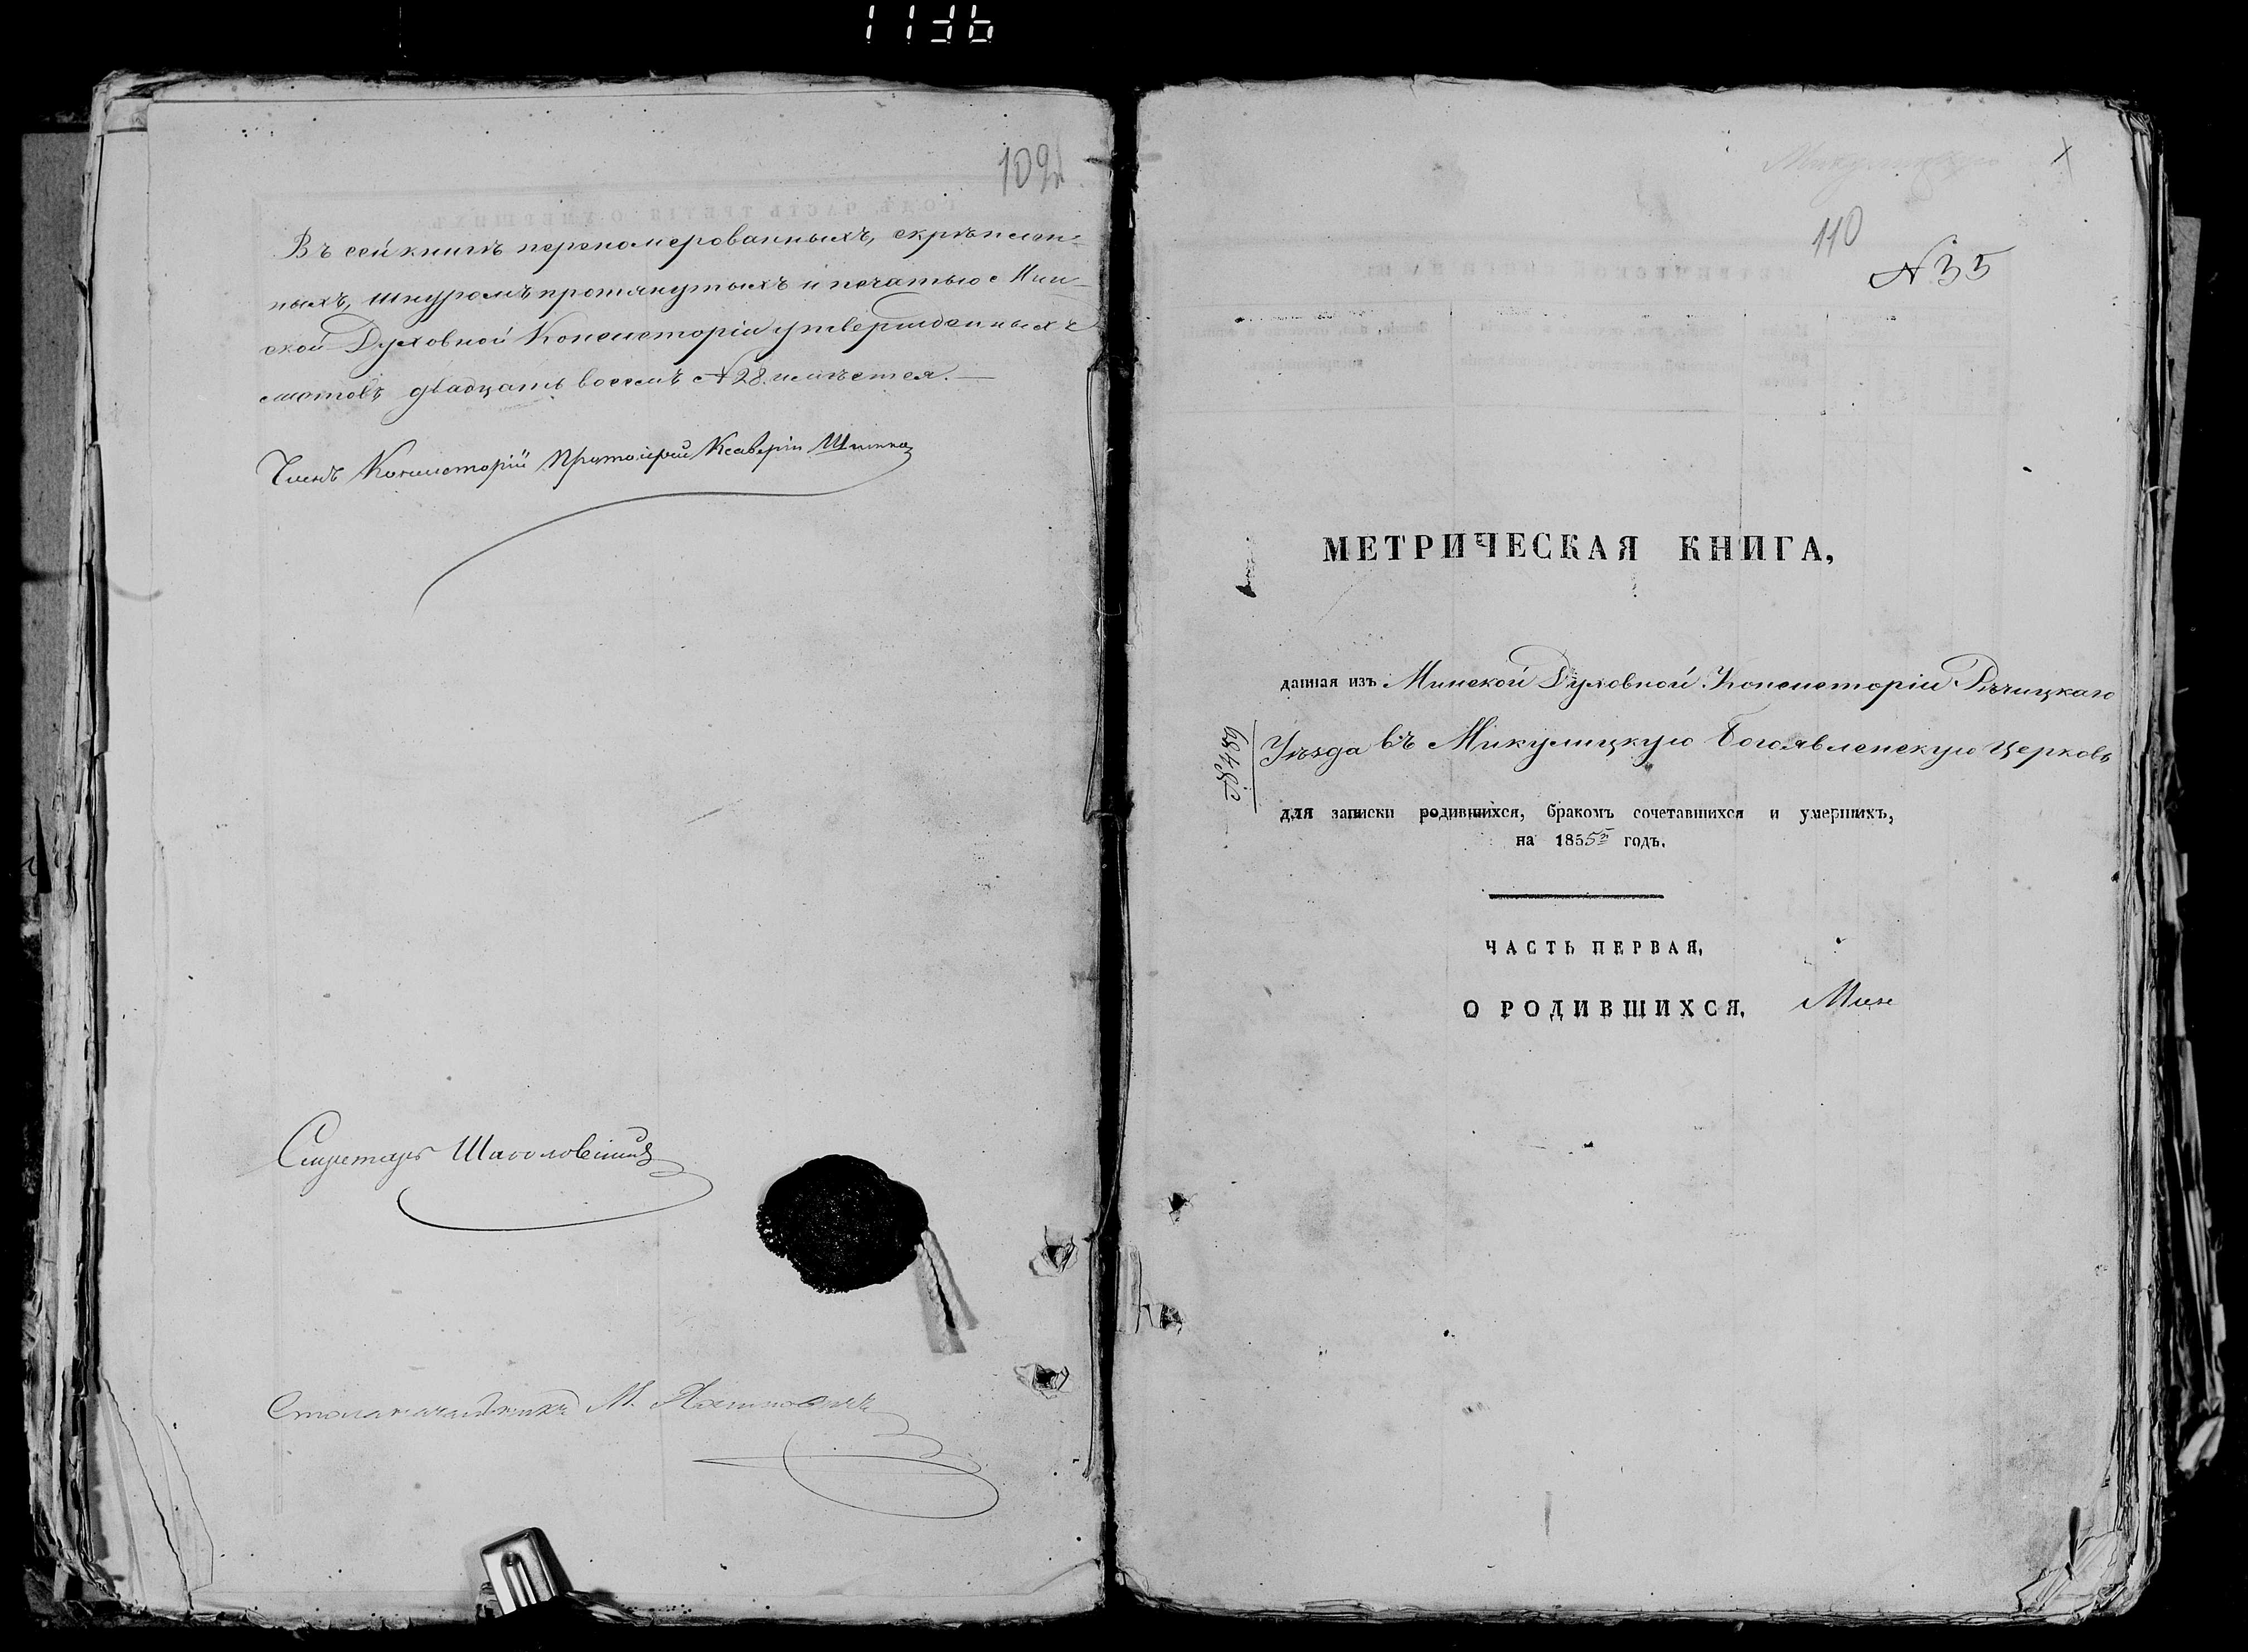 1136
109
Въ сей книгѣ переномерованныхъ, скрѣплен-
ныхъ, шнуромъ протянутыхъ и печатью Мин-
ской Духовной Консисторіи утвержденныхъ
листовъ двадцать восемь №28. имѣется. —
Членъ Консисторіи Протоіерей Ксаверій
Секретарь
Столоначальникъ М.
Микулицкую
110
N 35
МЕТРИЧЕСКАЯ КНИГА,
данная изъ Минской Духовной Консисторіи Рѣчицкаго
Уѣзда въ Микулицкую Богоявленскую Церковь
для записки родившихся, бракомъ сочетавшихся и умершихъ,
на 1855 годъ.
ЧАСТЬ ПЕРВАЯ,
О РОДИВШИХСЯ.